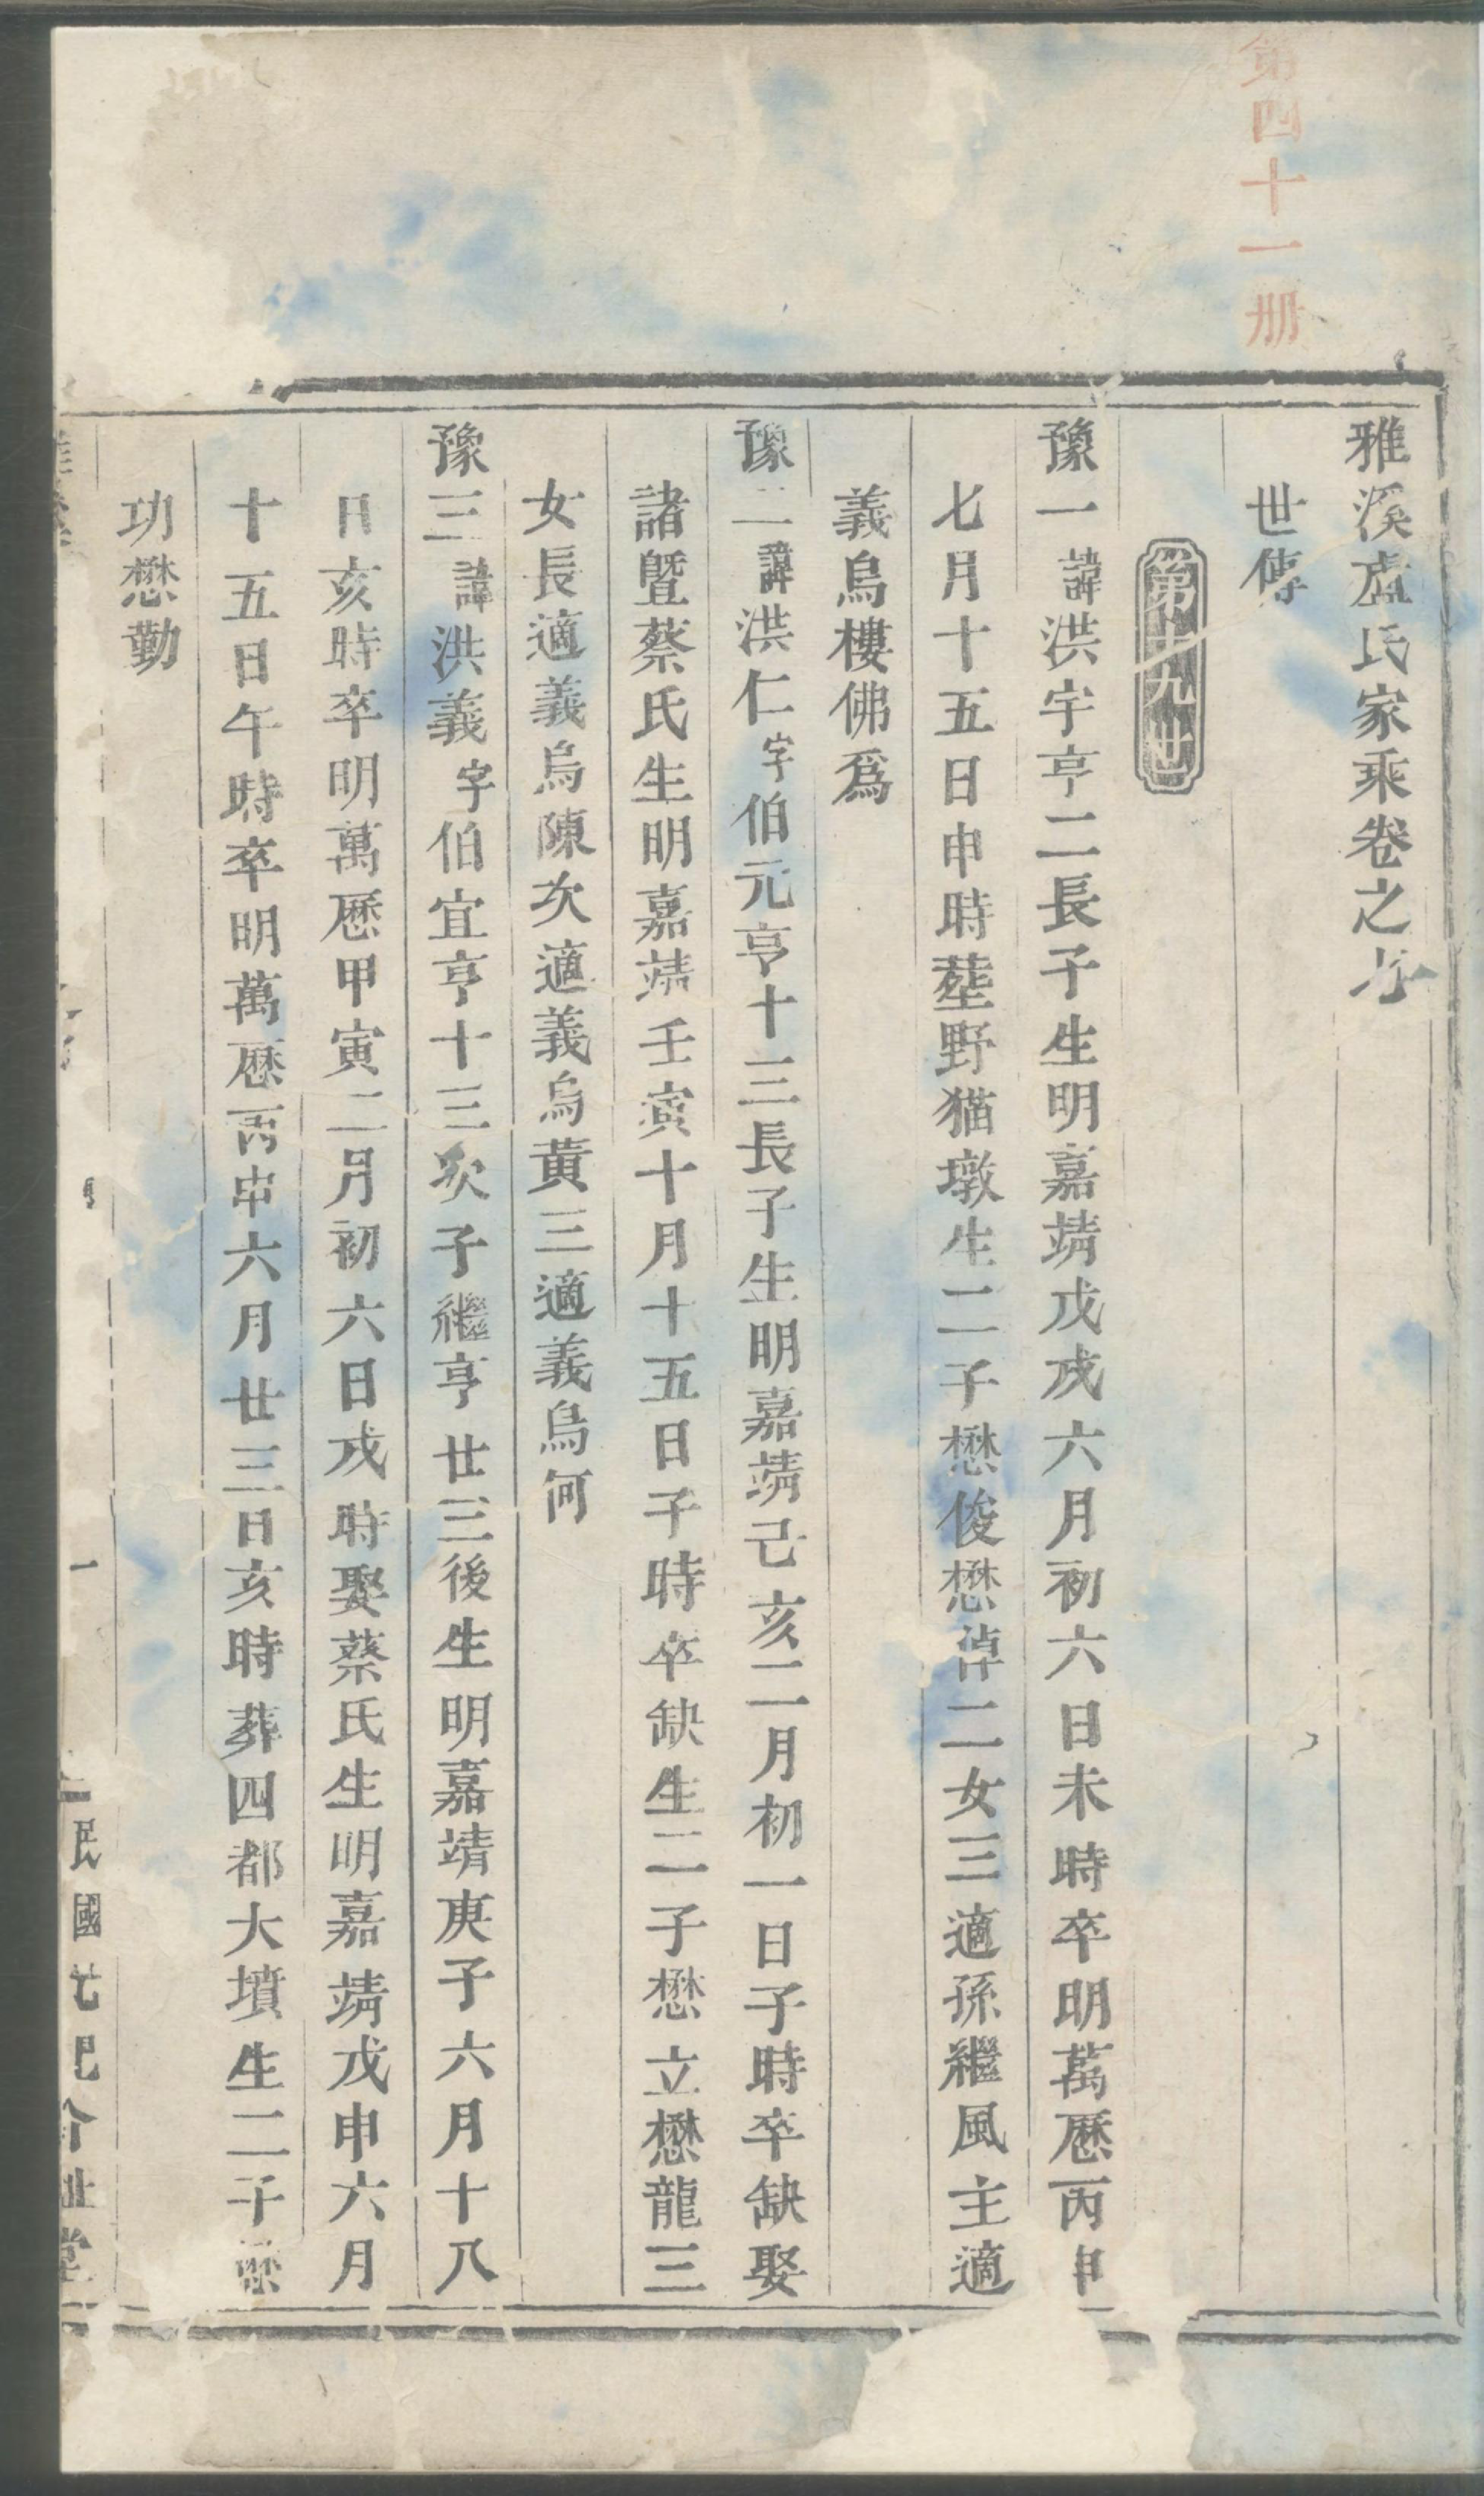 第四十一册
雅溪盧氏家乘卷之
世傳
第十九世
豫一諱洪宇亨二長子生明嘉靖戊戌六月初六日未時卒明萬歷丙申
七月十五日申時塟野猫墩生二子懋俊懋淖二女三適孫繼風主適
義烏樓佛爲
豫二諱洪仁字伯元亨十三長子生明嘉靖己亥二月初一日子時卒缺娶
諸暨蔡氏生明嘉靖壬寅十月十五日子時卒缺生二子懋立懋龍三
女長適義烏陳次適義烏黃三適義烏何
豫三諱洪義字伯宜亨十三次子繼亨廿三後生明嘉靖庚子六月十八
日亥時卒明萬歷甲寅二月初六日戌時娶蔡氏生明嘉靖戊申六月
十五日午時卒明萬歷丙申六月廿三日亥時葬四都大墳生二子懋
功懋勤
一
民國
堂